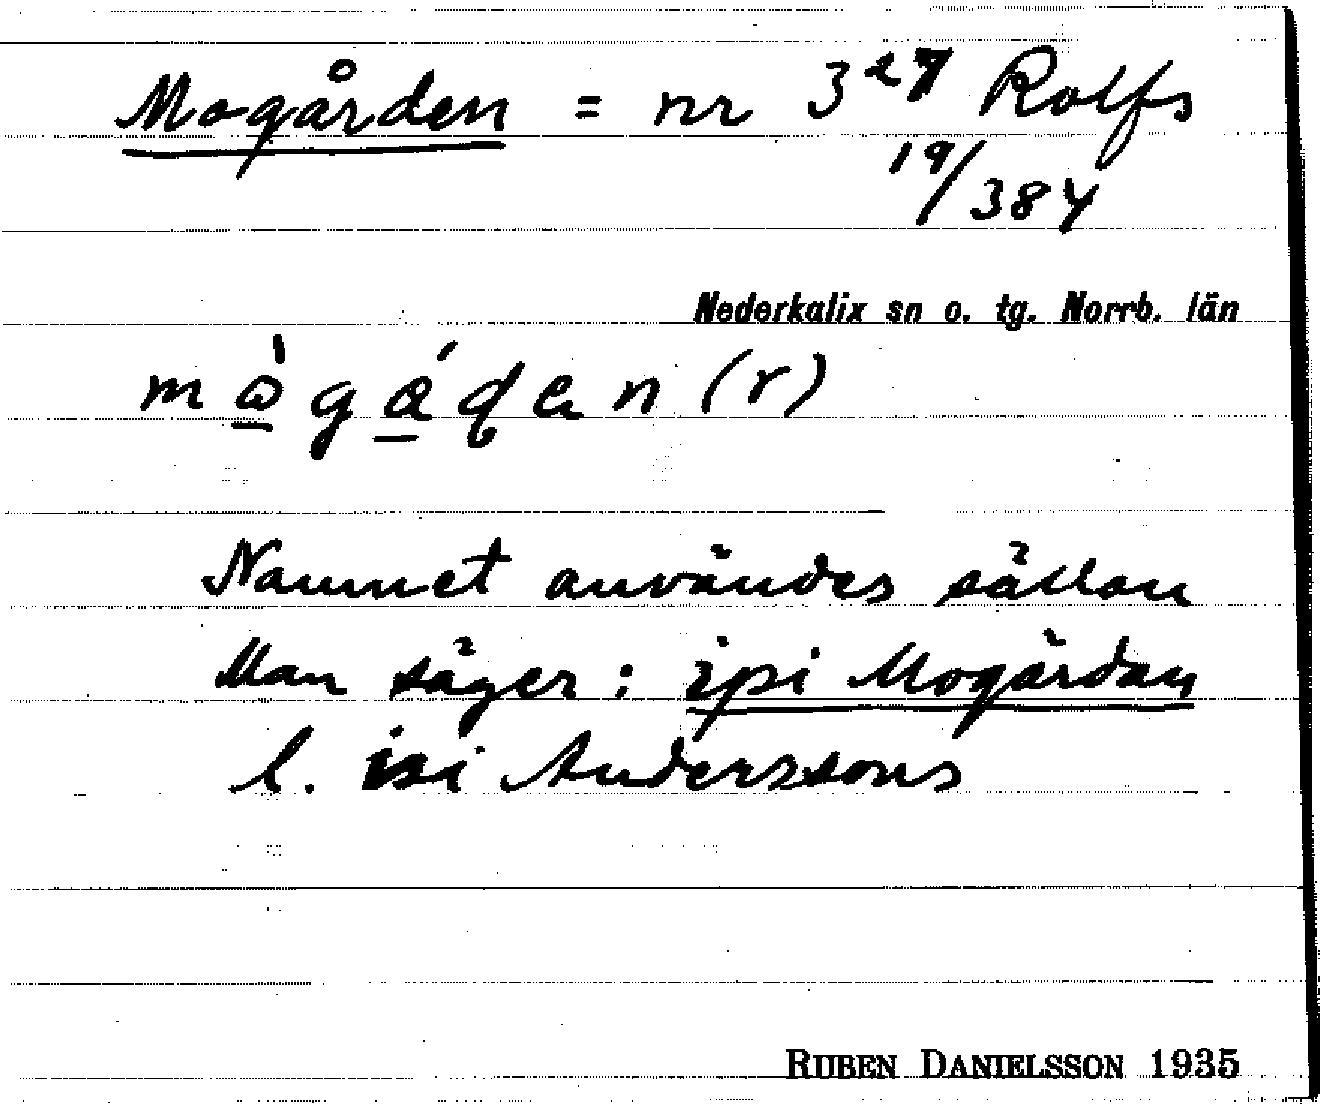 Mogården = nr 3²⁷ Rolfs
19/384
Nederkalix sn o. tg. Norrb. län
(r)
Namnet användes sällan
Man säger: ipi Mogårdan
l. isi Anderssons
RUBEN DANIELSSON 1935